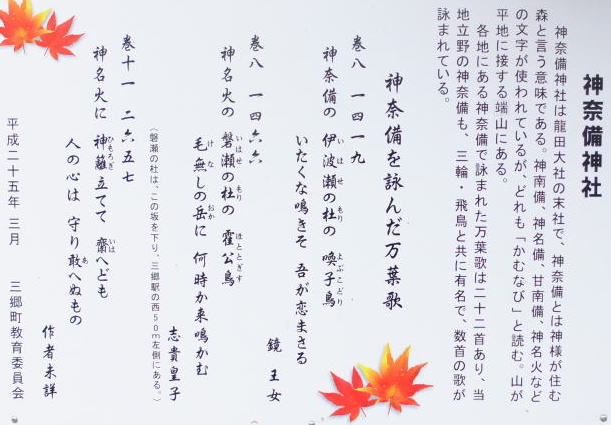 神奈備神社
神奈備神社は龍田大社の末社で、神奈備とは神様が住む
森と言う意味である。神南備、神名備、甘南備、神名火など
の文字が使われているが、どれも「かむなび」と読む。山が
平地に接する端山にある。
各地にある神奈備で詠まれた万葉歌は二十二首あり、当
地立野の神奈備も、三輪・飛鳥と共に有名で、数首の歌が
詠まれている。
神奈備を詠んだ万葉歌
巻八 一四一九
神奈備の 伊波瀬の杜の 喚子鳥
いはせ もり よぶこどり
いたくな鳴きそ 吾が恋まさる
鏡 王女
巻八 一四六六
神名火の 磐瀬の杜の 霍公鳥
いはせ もり ほととぎす
毛無しの岳に 何時か来鳴かむ
けな おか
志貴皇子
(磐瀬の杜は、この坂を下り、三郷駅の西50m左側にある。)
巻十一 二六五七
神名火に 神籬立てて 齋へども
ひもろぎ いは
人の心は 守り敢へぬもの
あ
作者未詳
平成二十五年 三月 三郷町教育委員会